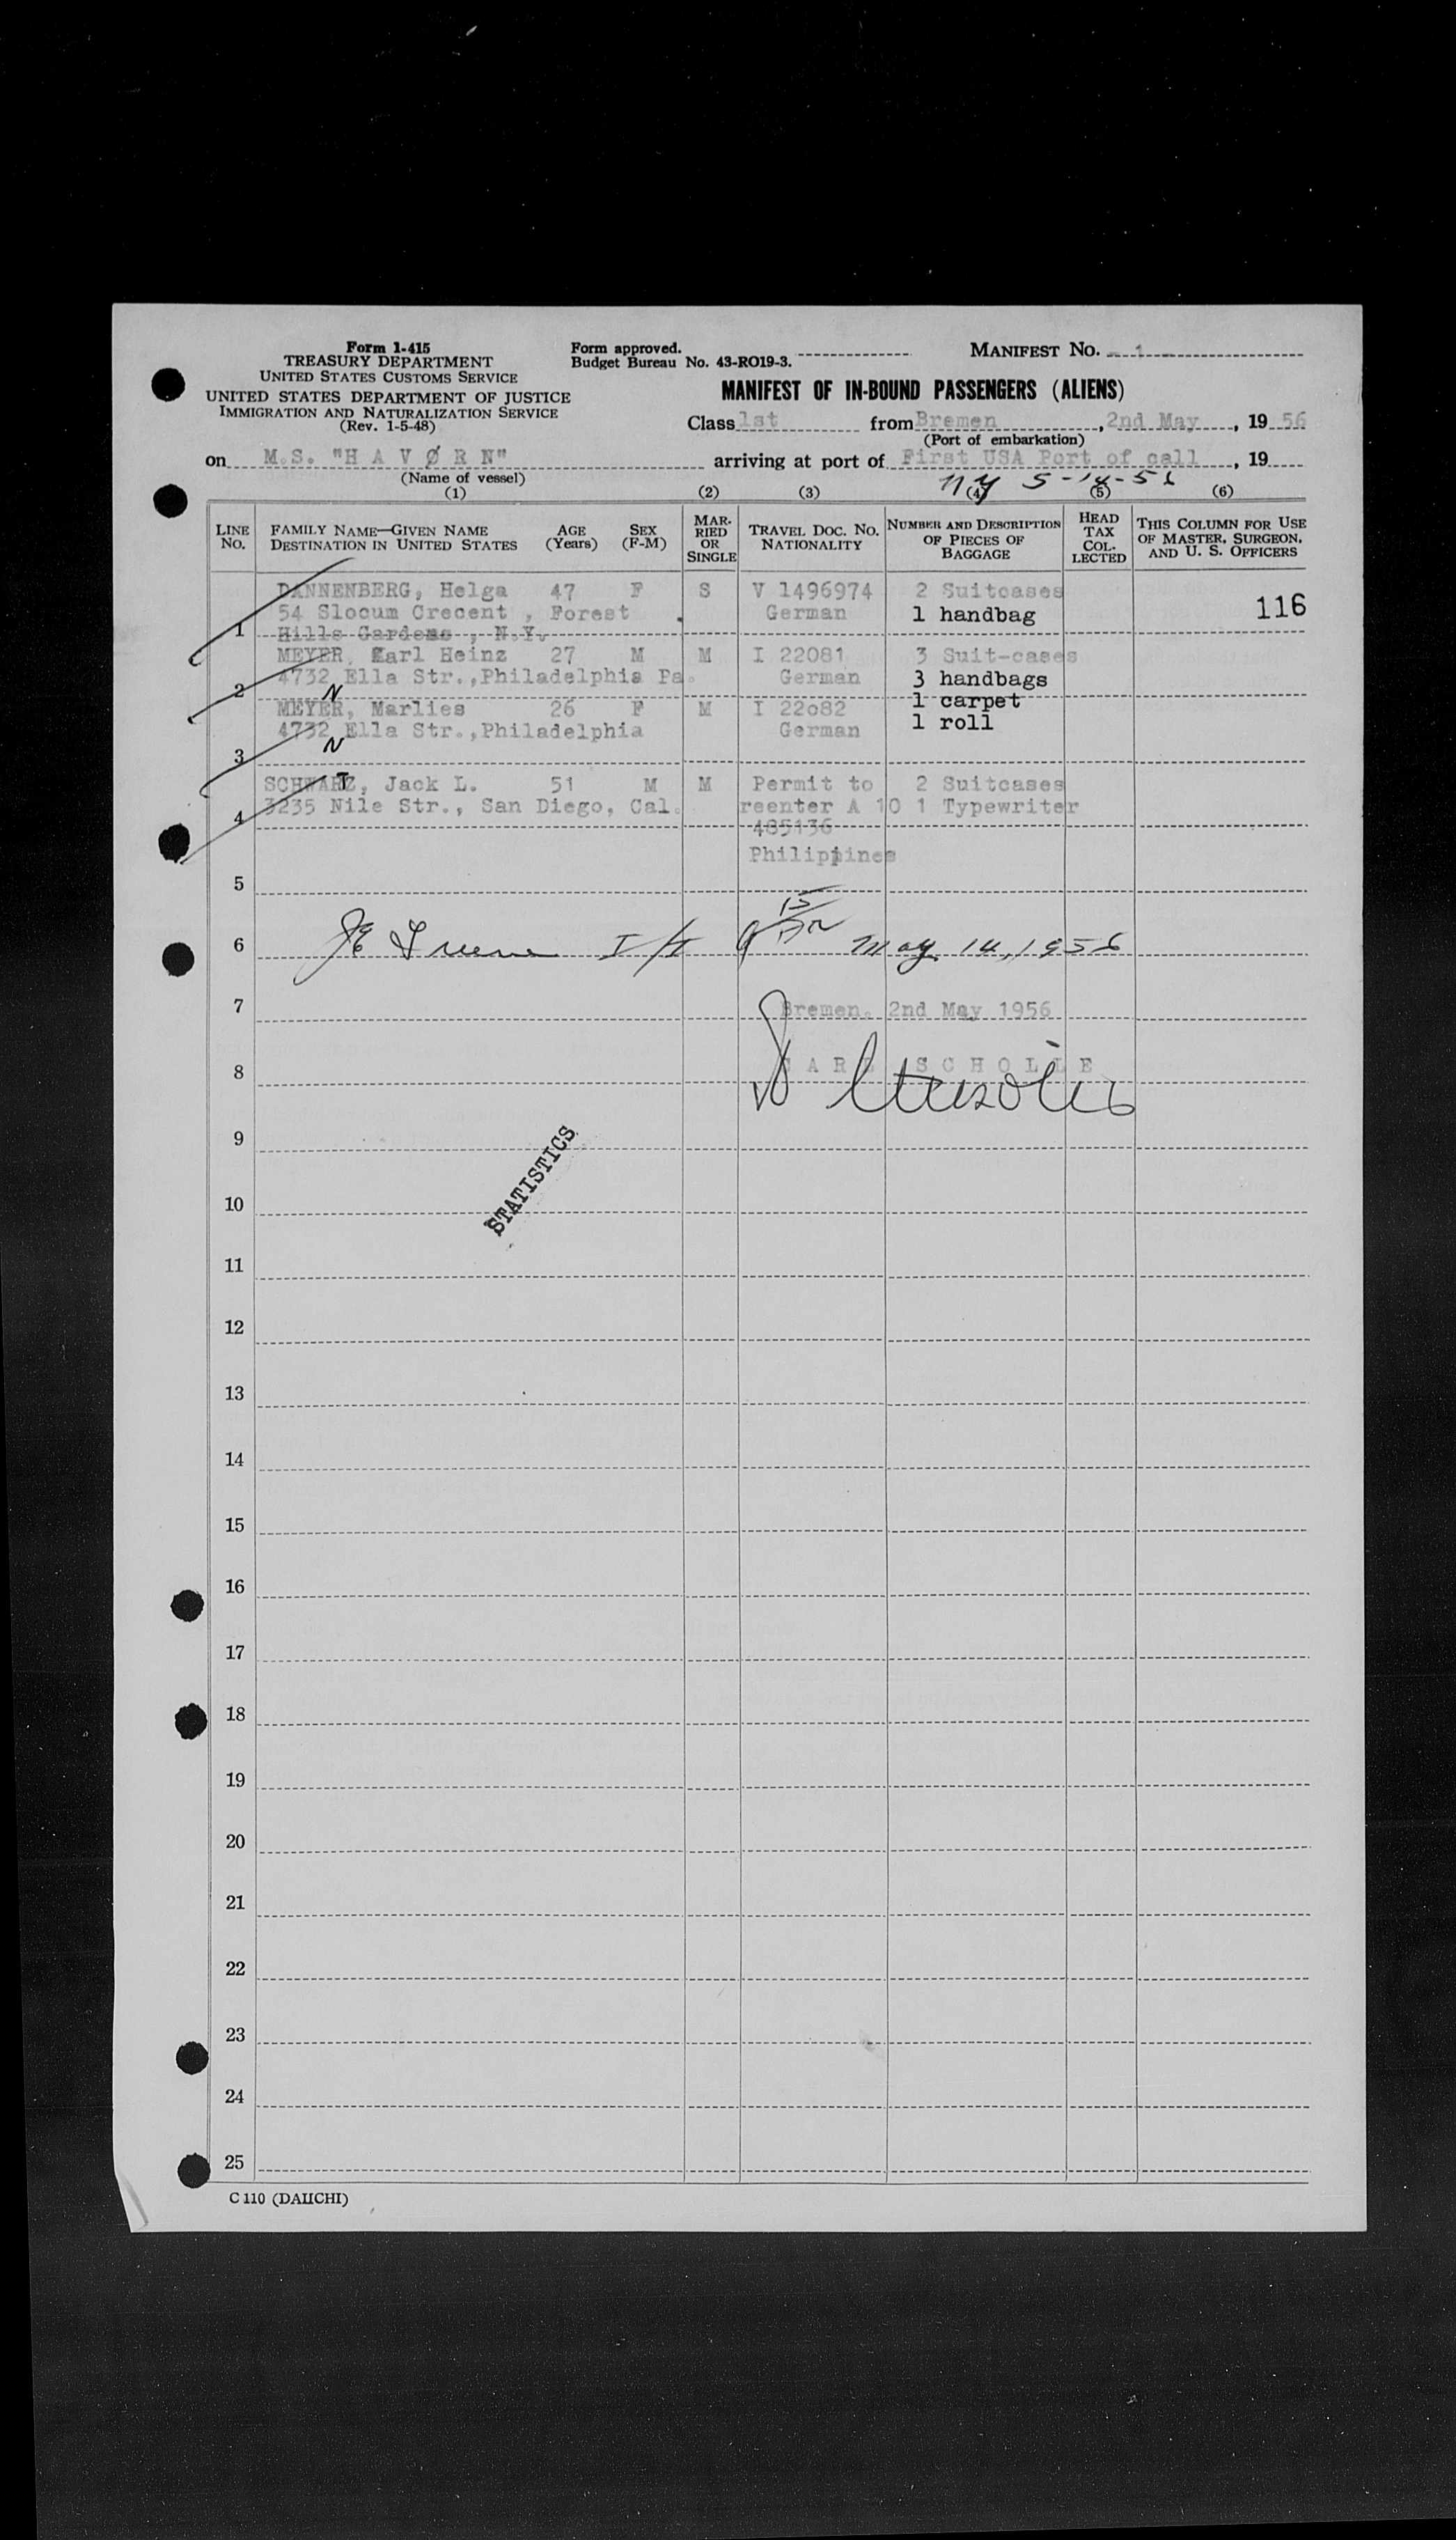 Form 1-415
TREASURY DEPARTMENT
UNITED STATES CUSTOMS SERVICE
UNITED STATES DEPARTMENT OF JUSTICE
IMMIGRATION AND NATURALIZATION SERVICE
(Rev. 1-5-48)
Form approved.
Budget Bureau No. 43-RO19-3.
MANIFEST No. 1
MANIFEST OF IN-BOUND PASSENGERS (ALIENS)
Class 1st from Bremen, 2nd May, 19 56
(Port of embarkation)
on M.S. "H A V Ø R N" arriving at port of First USA Port of call, 19
(Name of vessel)
NY 5-14-56
(1) (2) (3) (4) (5) (6)
LINE No.
FAMILY NAME—GIVEN NAME
DESTINATION IN UNITED STATES
AGE (Years)
SEX (F-M)
MARRIED OR SINGLE
TRAVEL DOC. NO. NATIONALITY
NUMBER AND DESCRIPTION OF PIECES OF BAGGAGE
HEAD TAX COLLECTED
THIS COLUMN FOR USE OF MASTER, SURGEON, AND U. S. OFFICERS
DANNENBERG, Helga 47 F S V 1496974 2 Suitcases
54 Slocum Crecent , Forest . German 1 handbag 116
1 Hills Gardens , N.Y.
MEYER, Karl Heinz 27 M M I 22081 3 Suit-cases
4732 Ella Str.,Philadelphia Pa. German 3 handbags
2 N 1 carpet
MEYER, Marlies 26 F M I 22o82 1 roll
4732 Ella Str.,Philadelphia German
3 N
SCHWARZ, Jack L. 51 M M Permit to 2 Suitcases
3235 Nile Str., San Diego, Cal. reenter A 10 1 Typewriter
4 485136
Philippines
5
6 May 14, 1956
7 Bremen, 2nd May 1956
8 CARL SCHOLLE
9
STATISTICS
10
11
12
13
14
15
16
17
18
19
20
21
22
23
24
25
C 110 (DAIICHI)